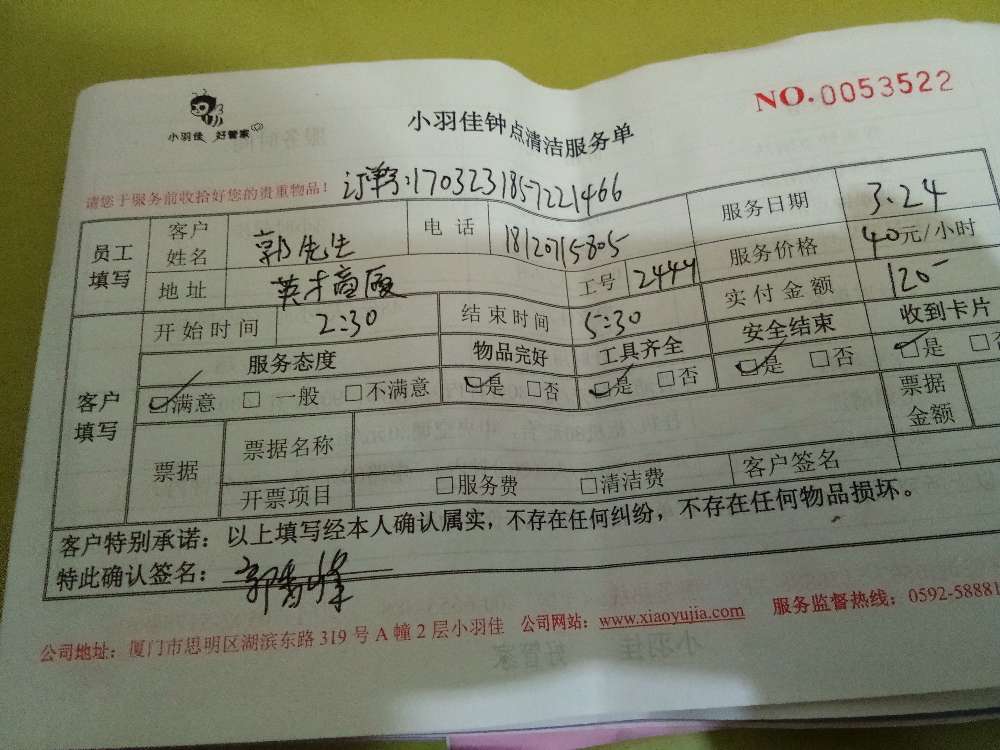 小羽佳 好管家
小羽佳钟点清洁服务单
NO.0053522
请您于服务前收拾好您的贵重物品！
订单号:1703231857221466
员工填写 客户姓名 郭先生 电话 18120715805 服务日期 3.24
地址 英才 工号 2444 服务价格 40元/小时
客户填写 开始时间 2:30 结束时间 5:30 实付金额 120-
服务态度 物品完好 工具齐全 安全结束 收到卡片
☑满意 □一般 □不满意 ☑是 □否 ☑是 □否 ☑是 □否 ☑是
票据 票据名称 票据金额
开票项目 □服务费 □清洁费 客户签名
客户特别承诺：以上填写经本人确认属实，不存在任何纠纷，不存在任何物品损坏。
特此确认签名：
公司地址：厦门市思明区湖滨东路319号A幢2层小羽佳 公司网站：www.xiaoyujia.com 服务监督热线：0592-58881